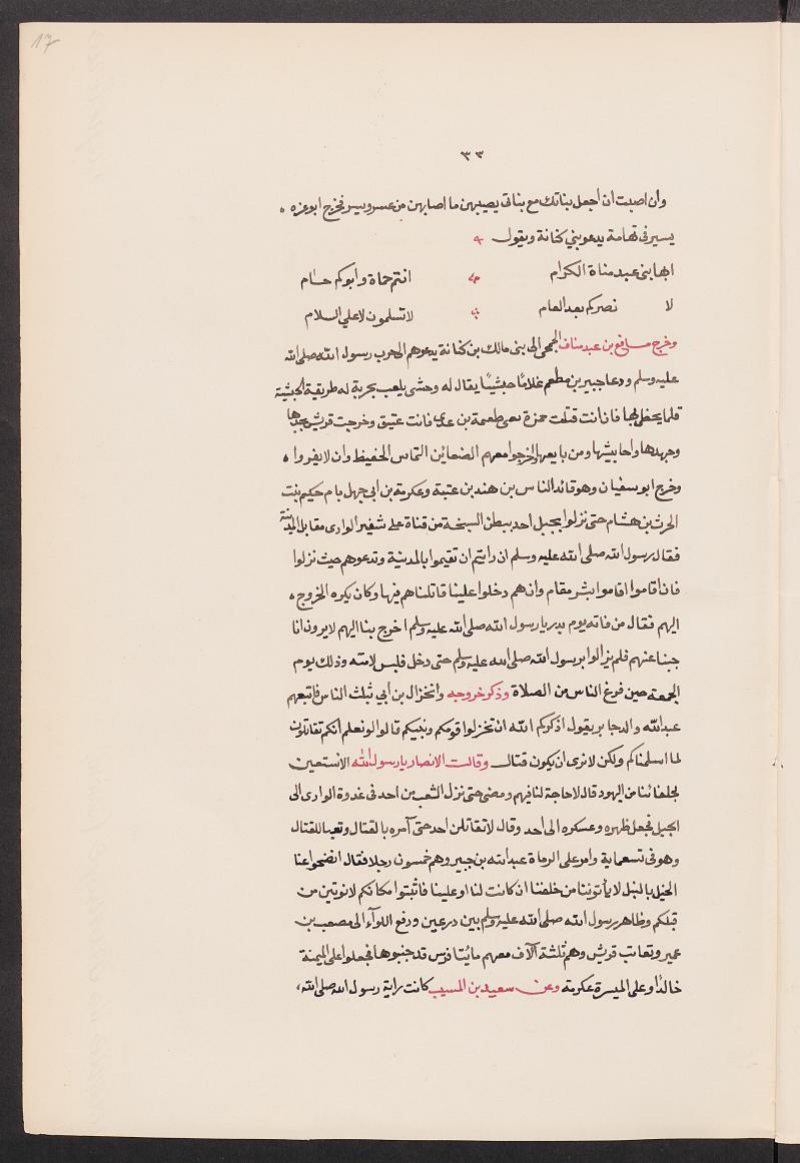 17
٣٣
وان اصبت ان اجعل بناتك مع بناتى يصيبهن ما اصابهن من عسر ويسر فخرج ابو عزه ٠
يسير فى تهامة يدعو بني كنانة ويقول
ايها بنى عبد مناة الكرام انتم حماة وابوكم حام
لا نصركم بعد العام لا تسلمون لا على السلام
وخرج مسافع بن عبد مناف الجمحى الى بنى مالك بن كنانة يدعوهم الى حرب رسول الله صلى الله
عليه وسلم ودعا جبير بن مطعم غلامًا حبشيًا يقال له وحشى يلعب بحربة له طريقية الحبشية
قلما يخطى بها فان انت قتلت حمزة بعمى طعيمة بن عدى فانت عتيق وخرجت قريش بحدها
وجهدها واحابيشها ومن بايعها وخرجوا معهم الضعاين التماس الحفيظ وان لا يفروا ٠
وخرج ابو سفيان وهو قائد الناس بن هند بن عتبة وعكرمة بن ابى جهل بام حكيم بنت
الحرث بن هشام حتى نزلوا بجبل احد ببطن السبخة من قناة على شفير الوادى مقابل المدينة
فقال رسول الله صلى الله عليه وسلم ان رايتم ان تقيموا بالمدينة وتدعوهم حيث نزلوا
فان اقاموا اقاموا بشر مقام وان هم دخلوا علينا قاتلناهم فيها وكان يكره الخروج ٠
اليهم فقال من فاته يوم بدر يا رسول الله صلى الله عليه وسلم اخرج بنا اليهم لا يرون انا
جبنا عنهم فلم يزالوا برسول الله صلى الله عليه وسلم حتى دخل فلبس لامته وذلك يوم
الجمعة حين فرغ الناس من الصلاة وذكر خروجه وانخزال بن أبي بثلث الناس فاتبعهم
عبد الله والد جابر يقول اذكركم الله ان تخزلوا قومكم ونبيكم قالوا لو نعلم انكم تقاتلون
لما اسلمناكم ولكن لا نرى ان يكون قتال وقالت الانصار يا رسول الله الا نستعين
بحلفائنا من اليهود قال لا حاجة لنا فيهم ومضى حتى نزل الشعب من احد فى عدوة الوادى الى
الجبل فجعل ظهره وعسكره الى احد وقال لا تقاتلن احد حتى آمره بالقتال وتعبا للقتال
وهو فى تسعماية وامر على الرماة عبد الله بن جبير وهم خمسون رجلا فقال انضحوا عنا
الخيل بالنبل لا ياتوننا من خلفنا ان كانت لنا او علينا فاثبتوا مكانكم لا نوتين من
قبلكم وظاهر رسول الله صلى الله عليه وسلم بين درعين ودفع اللوآء الى مصعب بن
عمير وتعابت قريش وهم ثلثة آلاف معهم مايتا فرس قد جنبوها فجعلوا على الميمنة
خالدًا وعلى الميسرة عكرمة وعن سعيد بن المسيب كانت راية رسول الله صلى الله،